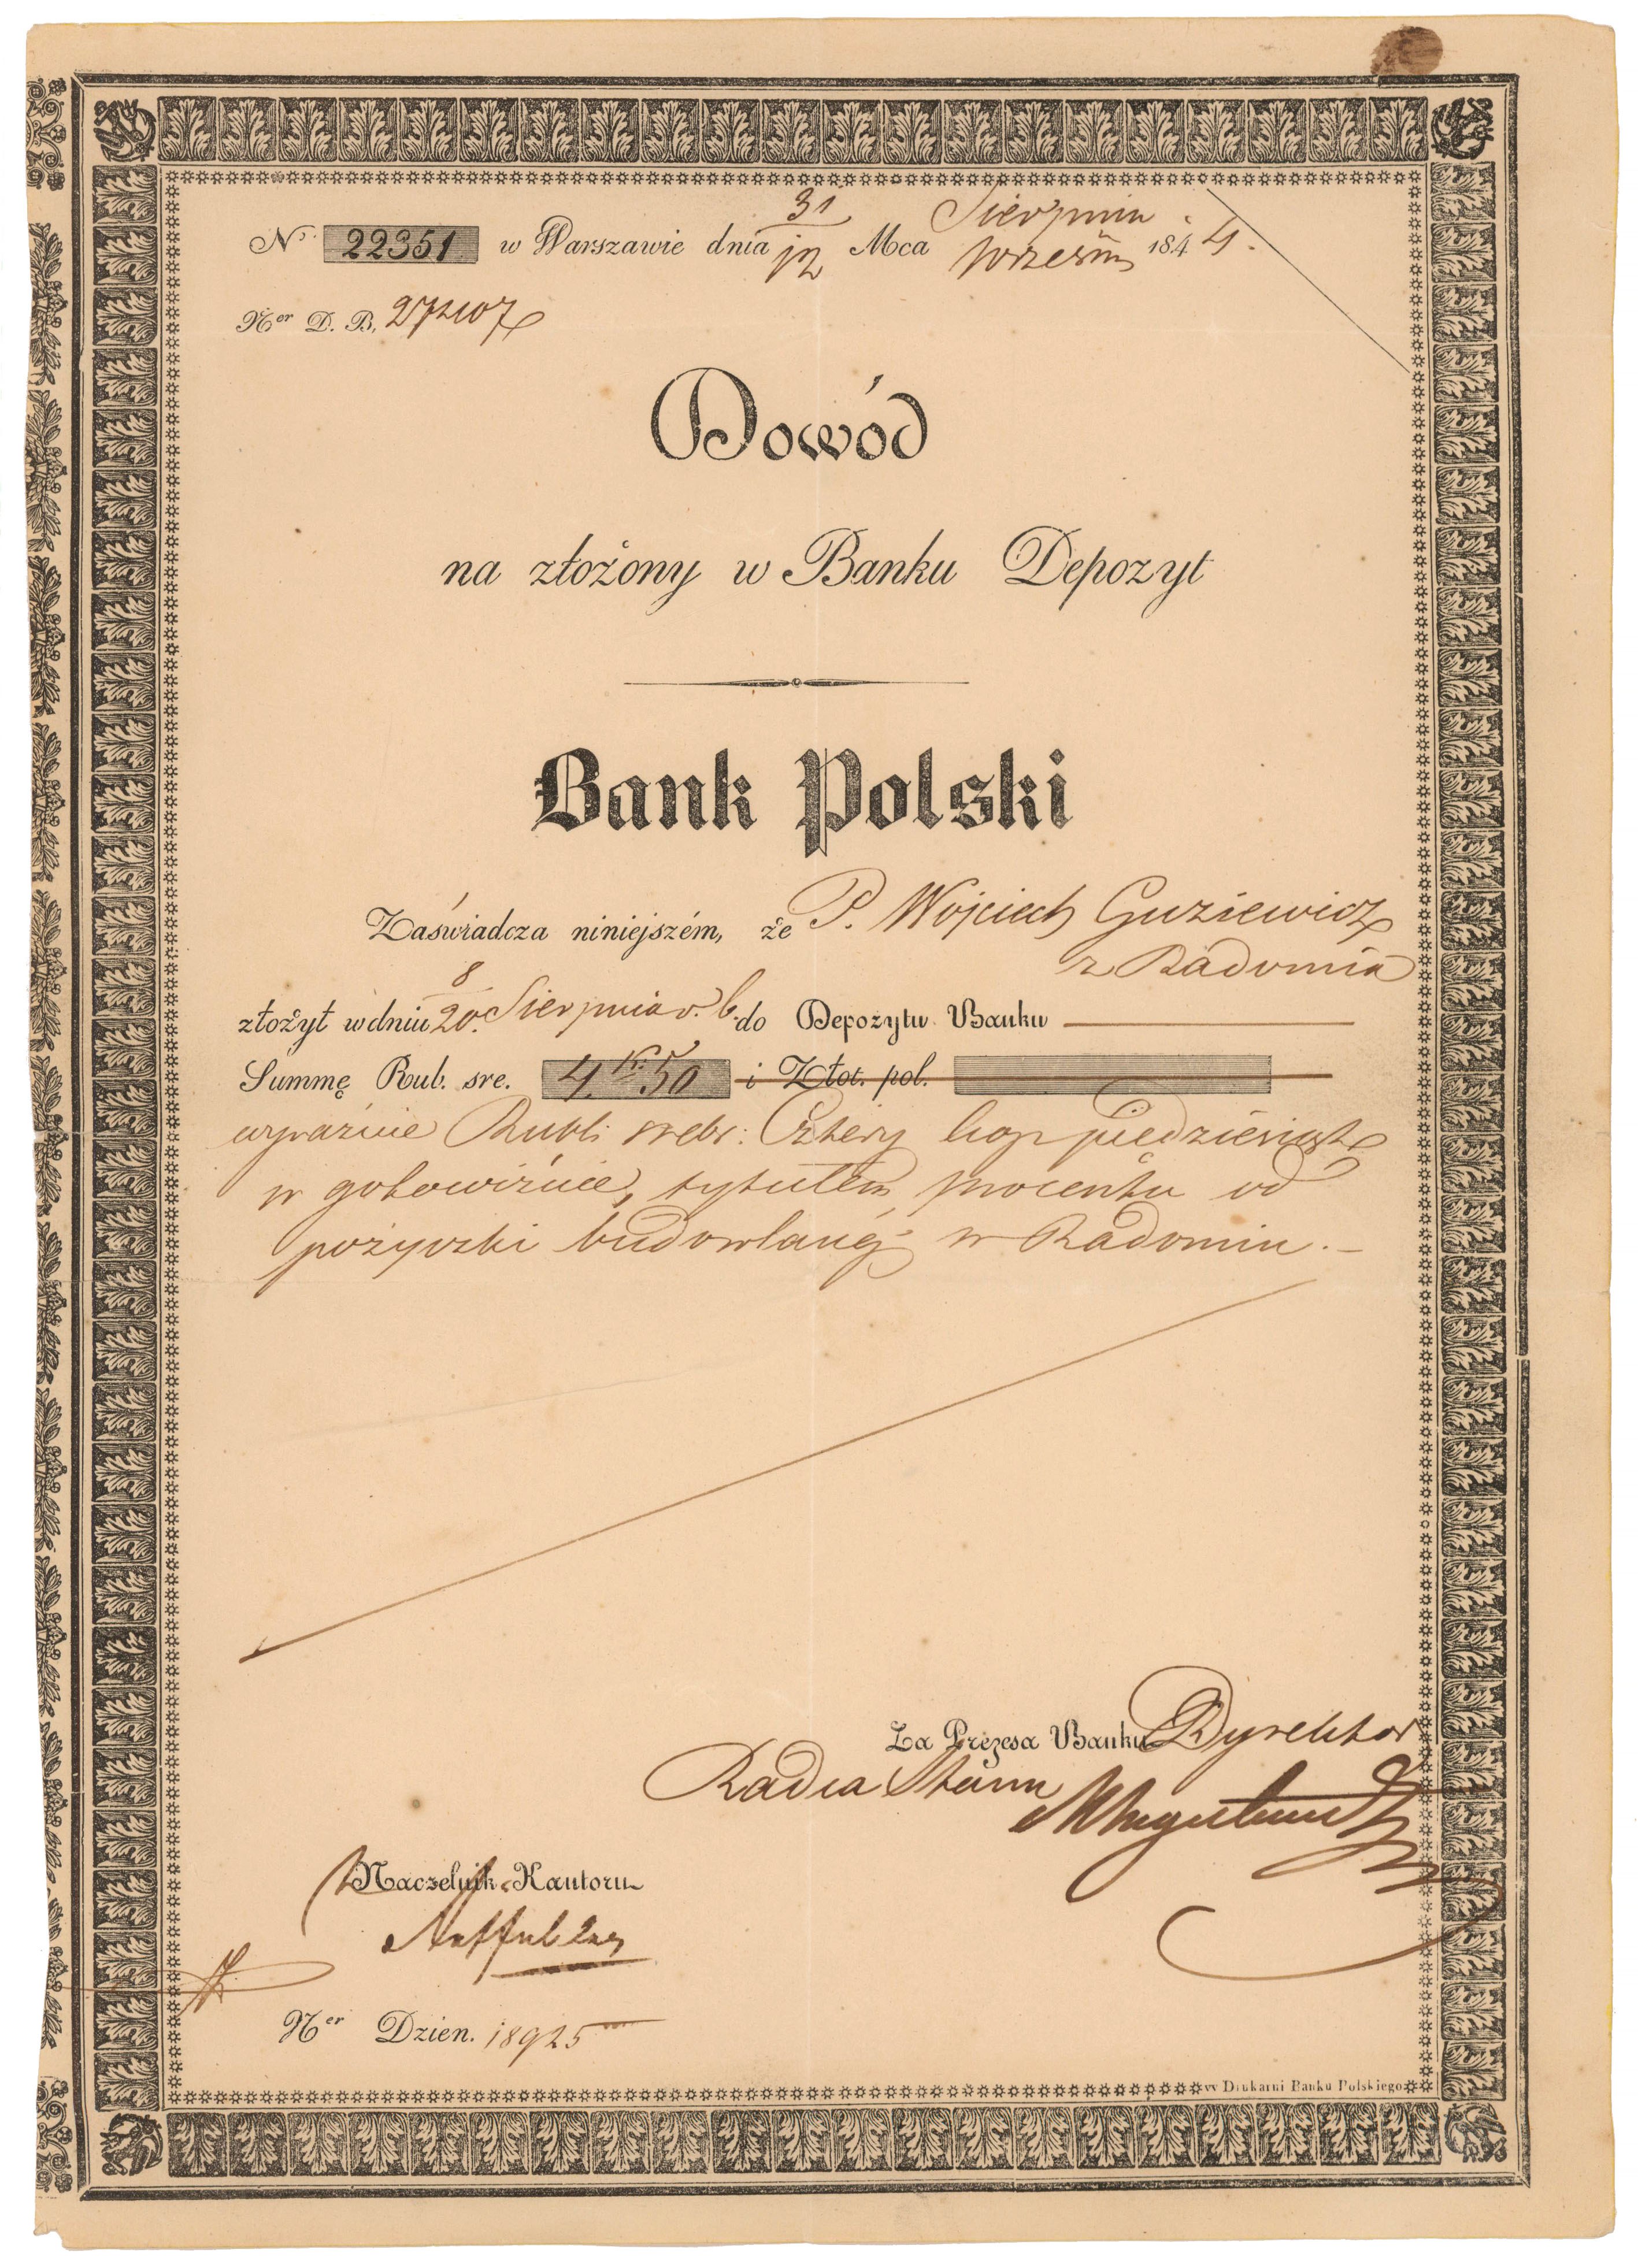 N<sup>r.</sup> 22351 w Warszawie dnia 31/12 Mca Sierpnia/Wrześn 1844.
N<sup>er</sup> D. B. 272107
Dowód
na złożony w Banku Depozyt
Bank Polski
Zaświadcza niniejszém, że P. Wojciech Guziewicz
z Radomia
złożył w dniu 8/20 Sierpnia r. b. do Depozytu Banku
Summę Rub. sre. 4 K. 50 i Złot. pol.
wyraźnie Rubli srebr: Cztery kop piedziesiąt
w gotowiźnie, tytułem procentu od
pożyczki budowlanéj w Radomiu. –
Za Prezesa Banku Dyrektor
Radca Stanu
Naczelnik Kantoru
N<sup>er</sup> Dzien. 18925
w Drukarni Banku Polskiego